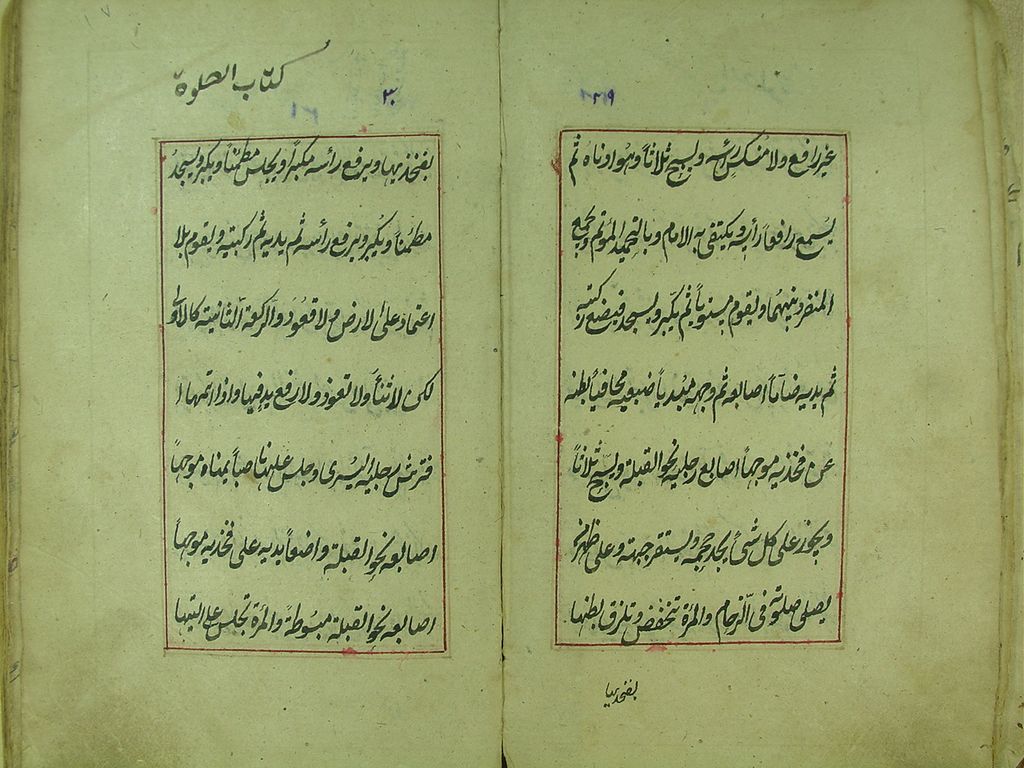 ٢٩
غير رافع ولا منكس رأسه ويسبح ثلاثاً وهو ادناه ثم
يسمع رافعاً رأسه ويكتفى به الامام وبالتحميد المؤتم ويجمع
المنفرد بينهما ويقوم مستوياً ثم يكبر ويسجد فيضع ركبتيه
ثم يديه ضاماً اصابعه ثم وجهه مبدياً ضبعيه مجافياً بطنه
عن فخذيه موجهاً اصابع رجليه نحو القبلة ويسبح ثلاثاً
ويجوز على كل شئ يجد حجمه ويستقر جبهته وعلى ظهر من
يصلى صلوته فى الزحام والمرءة تنخفض وتلزق بطنها
بفخذيها
كتاب الصلوة
٣٠
بفخذيها ويرفع رأسه مكبراً ويجلس مطمئناً ويكبر ويسجد
مطمئناً ويكبر ويرفع رأسه ثم يديه ثم ركبتيه ويقوم بلا
اعتماد على الارض ولا قعود والركعة الثانية كالاولى
لكن لا ثناً ولا تعوذ ولا رفع يد فيها واذا اتمها ا
فترش رجله اليسرى وجلس عليها ناصباً يمناه موجهاً
اصابعه نحو القبلة واضعاً يديه على فخذيه موجهاً
اصابعه نحو القبلة مبسوطة والمرءة تجلس على اليتها